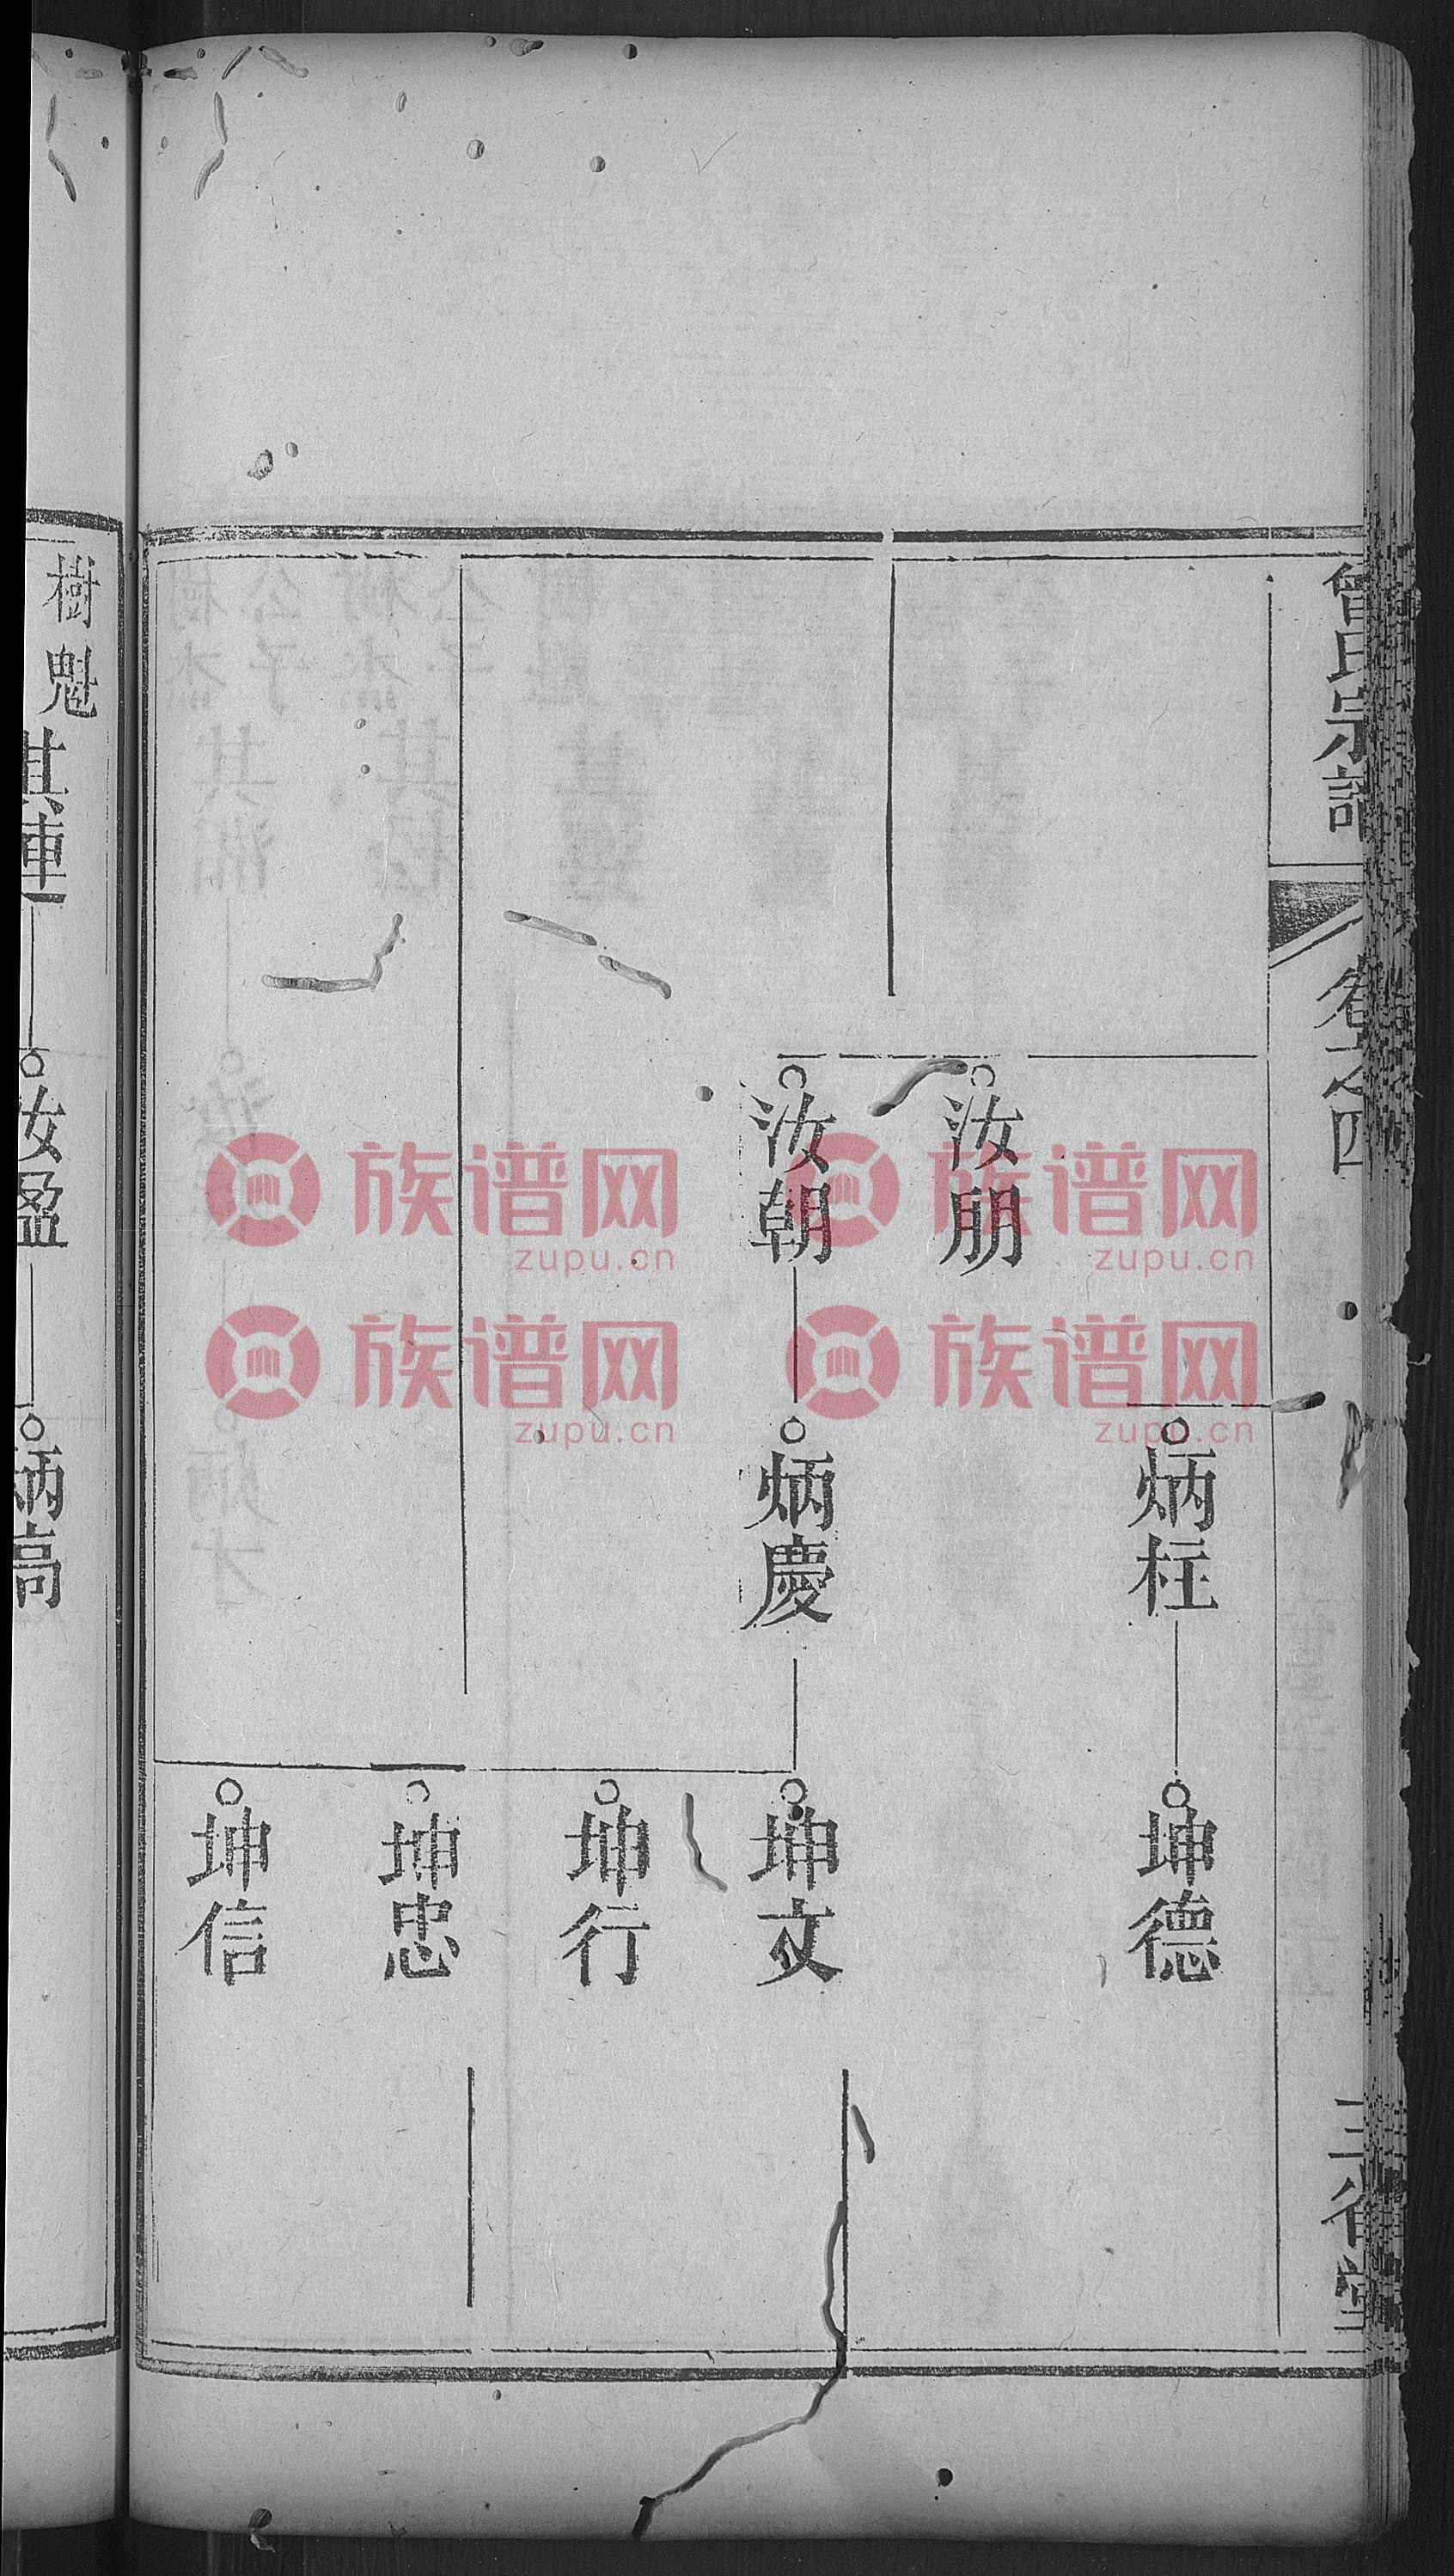 曾氏宗譜
卷之四
三省堂
炳柱
坤德
汝朋
汝朝
炳慶
坤文
坤行
坤忠
坤信
樹魁
其連
汝盈
炳高
族谱网
zupu.cn
族谱网
zupu.cn
族谱网
zupu.cn
族谱网
zupu.cn